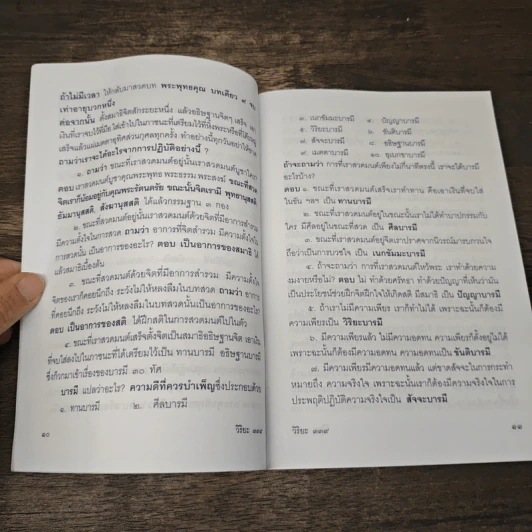 ถ้าไม่มีเวลา ให้กลับมาสวดบท พระพุทธคุณ บทเดียว ๙ จบ
เท่าอายุบวกหนึ่ง
ต่อจากนั้น ตั้งสมาธิจิตสักระยะหนึ่ง แล้วอธิษฐานจิตๆ เสร็จ เอา
เงินที่เราจบไว้ที่มือ ใส่เข้าไปในภาชนะที่เตรียมไว้ที่หิ้งพระหรือที่โต๊ะหมู่
เสร็จแล้วแผ่เมตตาอุทิศส่วนกุศลทุกครั้ง ทำอย่างนี้ทุกวันอย่าให้ขาด
ถามว่าเราจะได้อะไรจากการปฏิบัติอย่างนี้ ?
๑. ถามว่า ขณะที่เราสวดมนต์อยู่นั้นเราสวดมนต์บูชาใคร
ตอบ เราสวดมนต์บูชาคุณพระพุทธ พระธรรม พระสงฆ์ ขณะที่สวด
จิตเราก็น้อมอยู่กับคุณพระรัตนตรัย ขณะนั้นจิตเรามี พุทธานุสติ
ธัมมานุสสติ, สังฆานุสสติ ได้แล้วกรรมฐาน ๓ กอง
๒. ขณะที่เราสวดมนต์อยู่นั้นเราสวดมนต์ด้วยจิตที่มีอาการสำรวม
มีความตั้งใจในการสวด ถามว่า อาการที่จิตสำรวม มีความตั้งใจใน
การสวดนั้น เป็นอาการของอะไร? ตอบ เป็นอาการของสมาธิ ได้
แล้วสมาธิเบื้องต้น
๓. ขณะที่สวดมนต์ด้วยจิตที่มีอาการสำรวม มีความตั้งใจ
จิตของเราก็คอยนึกถึง ระวังไม่ให้หลงลืมในบทสวด ถามว่า อาการ
ที่คอยนึกถึง ระวังไม่ให้หลงลืมในบทสวดนั้นเป็นอาการของอะไร?
ตอบ เป็นอาการของสติ ได้ฝึกสติในการสวดมนต์ไปในตัว
๔. ขณะที่เราสวดมนต์เสร็จตั้งจิตเป็นสมาธิอธิษฐานจิต เอาเงิน
ที่จบใส่ลงไปในภาชนะที่ได้เตรียมไว้เป็น ทานบารมี อธิษฐานบารมี
ซึ่งก็วกมาเข้าเรื่องของบารมี ๓๐ ทัศ
บารมี แปลว่าอะไร? ความดีที่ควรบำเพ็ญซึ่งประกอบด้วย
๑. ทานบารมี ๒. ศีลบารมี
๑๐ วิริยะ ๑๑๙
๓. เนกขัมมะบารมี ๔. ปัญญาบารมี
๕. วิริยะบารมี ๖. ขันติบารมี
๗. สัจจะบารมี ๘. อธิษฐานบารมี
๙. เมตตาบารมี ๑๐. อุเบกขาบารมี
ถ้าจะถามว่า การที่เราสวดมนต์เพียงไม่กี่นาทีตรงนี้ เราจะได้บารมี
อะไรบ้าง?
ตอบ ๑. ขณะที่เราสวดมนต์เสร็จเราทำทาน คือเอาเงินที่จบใส่
ในขัน ฯลฯ เป็น ทานบารมี
๒. ขณะที่เราสวดมนต์อยู่ในขณะนั้นเราไม่ได้ทำบาปกรรมกับ
ใคร มีศีลอยู่ในขณะที่สวด เป็น ศีลบารมี
๓. ขณะที่เราสวดมนต์อยู่จิตเราปราศจากนิวรณ์มารบกวนใจ
ถือว่าเป็นการบวชใจ เป็น เนกขัมมะบารมี
๔. ถ้าจะถามว่า การที่เราสวดมนต์ไหว้พระ เราทำด้วยความ
งมงายหรือไม่? ตอบ ไม่ ทำด้วยศรัทธา ทำด้วยปัญญาที่เห็นว่ามัน
เป็นประโยชน์ช่วยฝึกจิตฝึกใจให้เกิดสติ มีสมาธิ เป็น ปัญญาบารมี
๕. ถ้าเราไม่มีความเพียร เราก็ทำไม่ได้ เพราะฉะนั้นก็ต้องมี
ความเพียรเป็น วิริยะบารมี
๖. มีความเพียรแล้ว ไม่มีความอดทน ความเพียรก็ตั้งอยู่ไม่ได้
เพราะฉะนั้นก็ต้องมีความอดทน ความอดทนเป็น ขันติบารมี
๗. มีความเพียรมีความอดทนแล้ว แต่ขาดสัจจะในการกระทำ
หมายถึง ความจริงใจ เพราะฉะนั้นเราก็ต้องมีความจริงใจในการ
ประพฤติปฏิบัติความจริงใจเป็น สัจจะบารมี
วิริยะ ๑๑๙ ๑๑